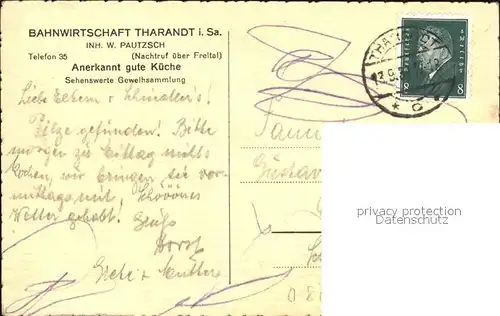 BAHNWIRTSCHAFT THARANDT i. Sa.
INH. W. PAUTZSCH
Telefon 35 (Nachtruf über Freital)
Anerkannt gute Küche
Sehenswerte Geweihsammlung
Liebe Eltern + Schindler's!
Pilze gefunden! Bitte
morgen zu Mittag nichts
kochen, wir bringen sie vor-
mittags mit, Schööönes
Wetter gehabt. Gruß
Horst
Grete + Mutter
Gustav
THARANDT
8 8
privacy protection
Datenschutz